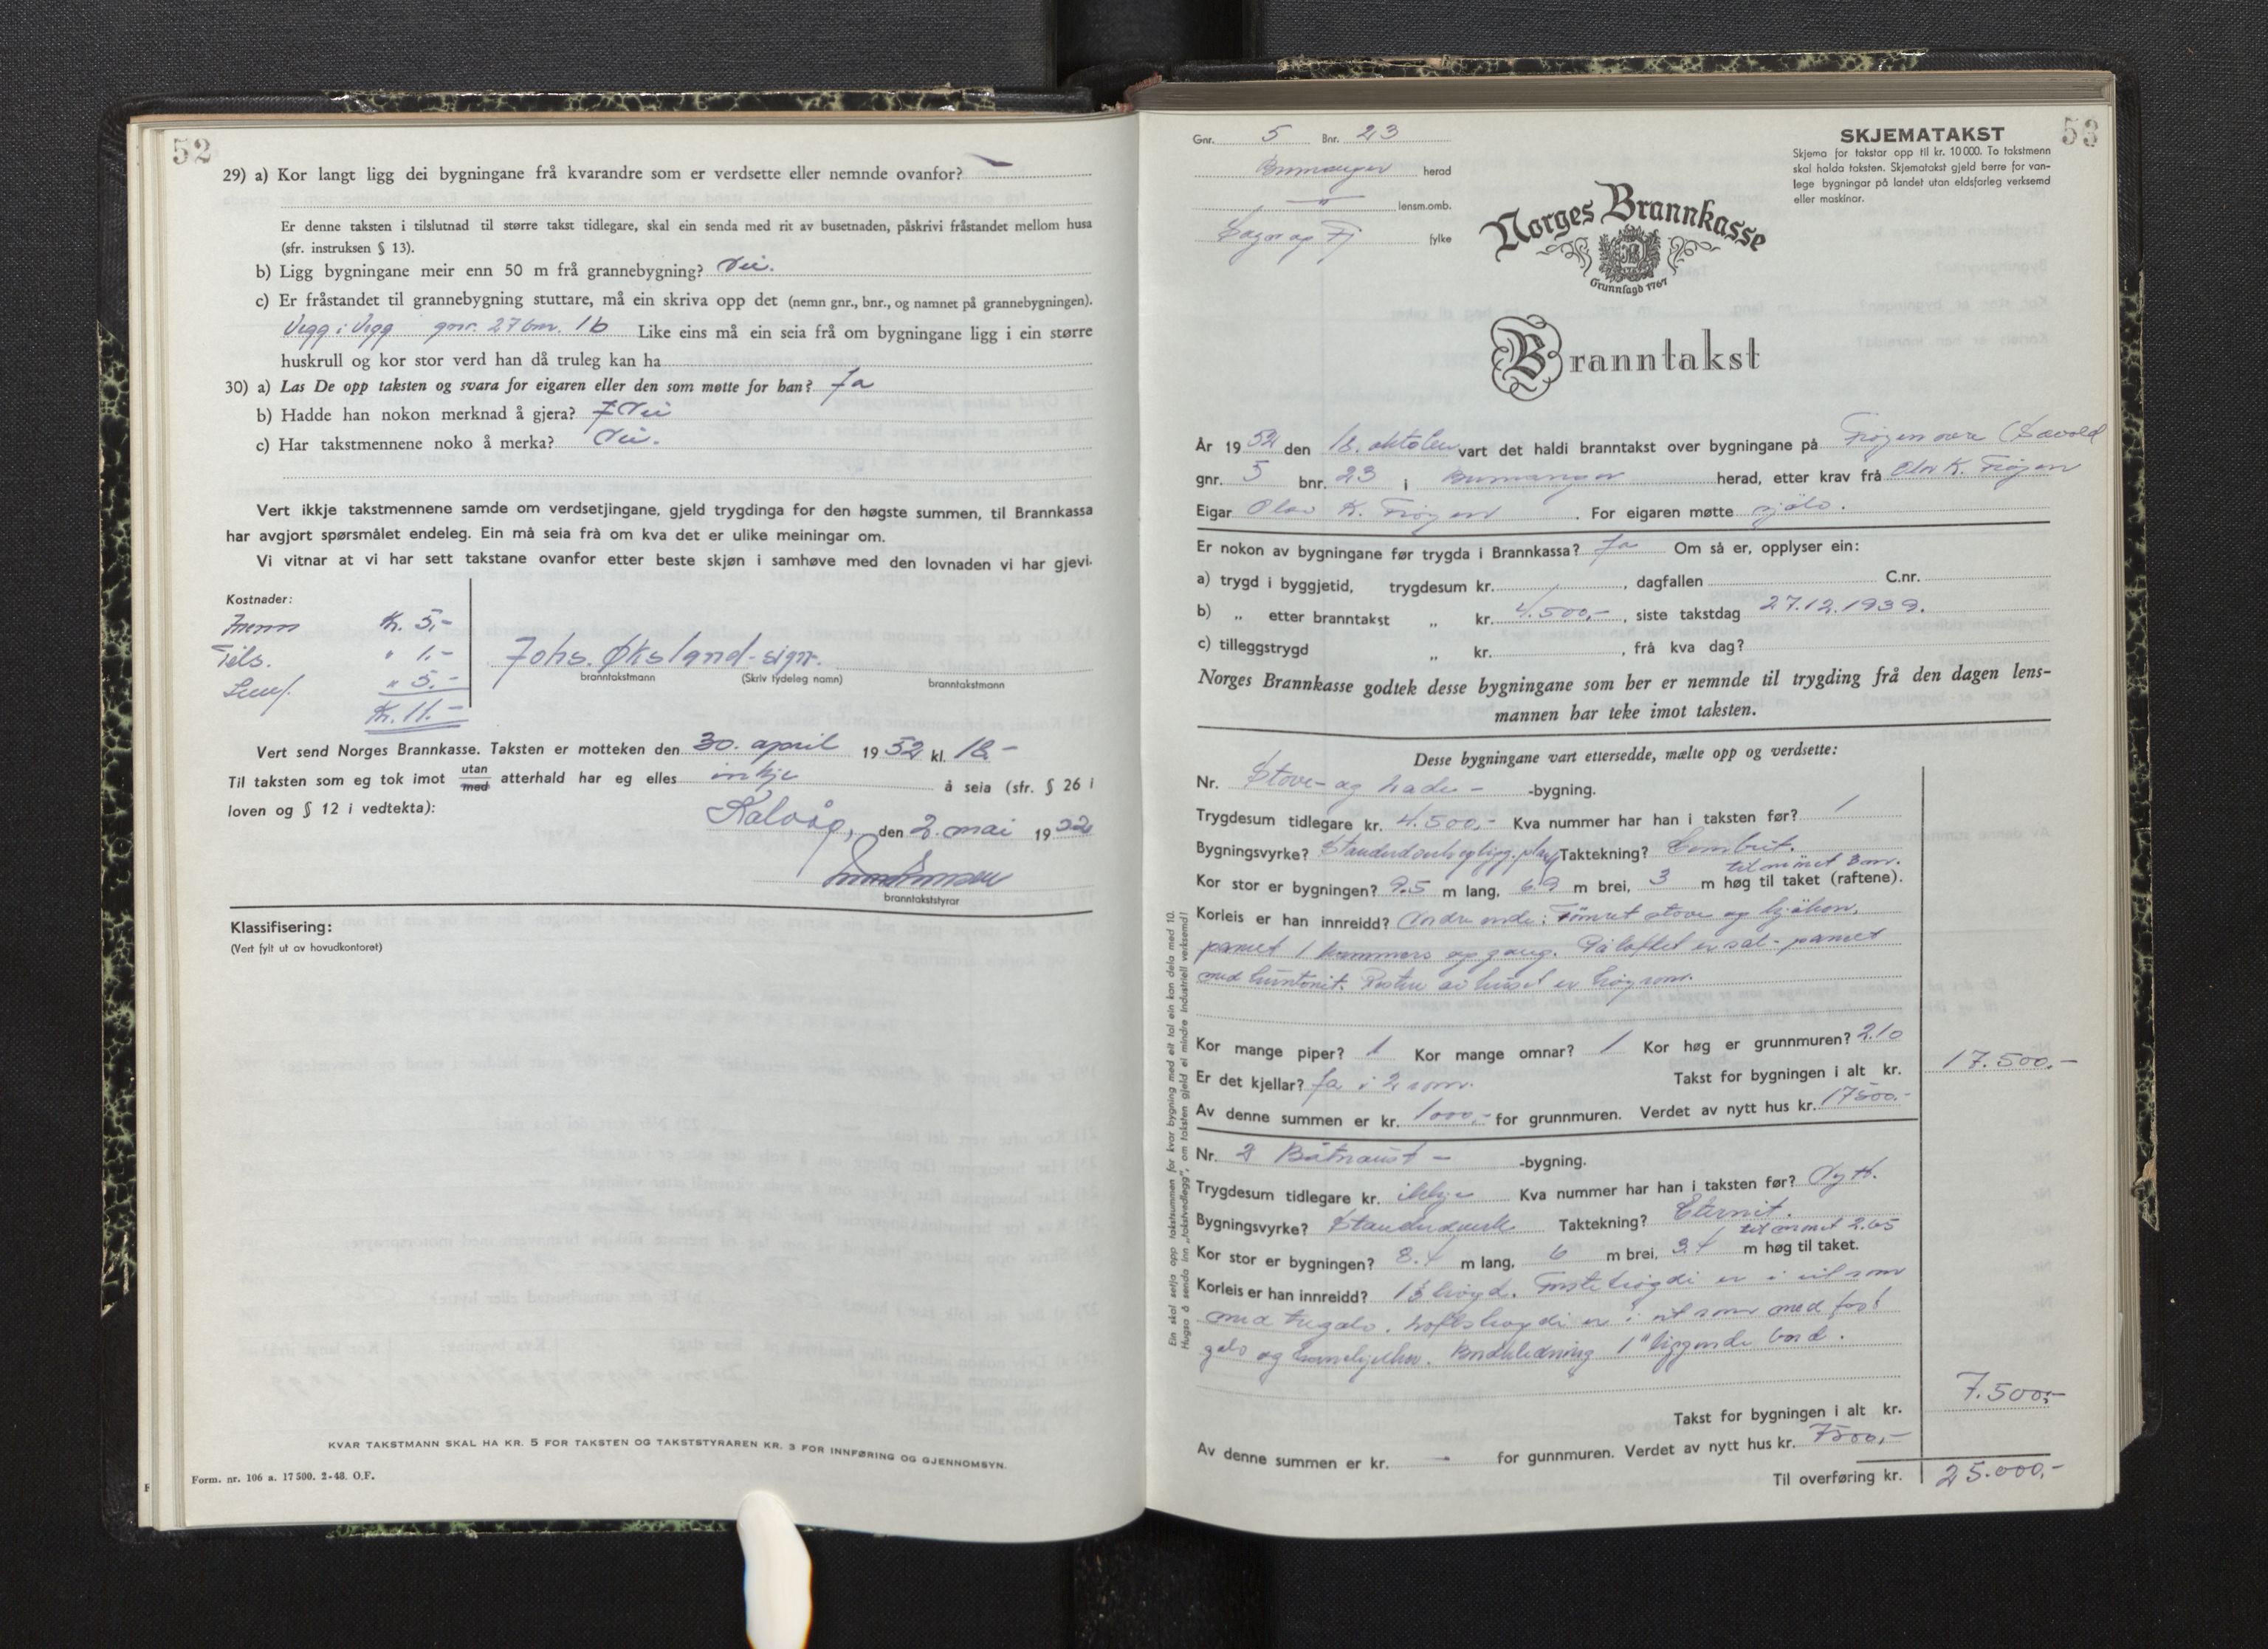 52
29) a) Kor langt ligg dei bygningane frå kvarandre som er verdsette eller nemnde ovanfor? —
Er denne taksten i tilslutnad til større takst tidlegare, skal ein senda med rit av busetnaden, påskrivi fråstandet mellom husa
(sfr. instruksen § 13).
b) Ligg bygningane meir enn 50 m frå grannebygning? Nei.
c) Er fråstandet til grannebygning stuttare, må ein skriva opp det (nemn gnr., bnr., og namnet på grannebygningen).
Vegg i Vegg gnr. 27 bnr. 1b Like eins må ein seia frå om bygningane ligg i ein større
huskrull og kor stor verd han då truleg kan ha
30) a) Las De opp taksten og svara for eigaren eller den som møtte for han? Ja
b) Hadde han nokon merknad å gjera? Nei
c) Har takstmennene noko å merka? Nei.
Vert ikkje takstmennene samde om verdsetjingane, gjeld trygdinga for den høgste summen, til Brannkassa
har avgjort spørsmålet endeleg. Ein må seia frå om kva det er ulike meiningar om.
Vi vitnar at vi har sett takstane ovanfor etter beste skjøn i samhøve med den lovnaden vi har gjevi.
Kostnader:
Kr. 5,-
Tils. " 1.-
" 5.-
Kr. 11.-
Johs. Øksland - sign.
branntakstmann (Skriv tydeleg namn) branntakstmann
Vert send Norges Brannkasse. Taksten er motteken den 30. april 1952 kl. 18-
Til taksten som eg tok imot utan/med atterhald har eg elles inkje å seia (sfr. § 26 i
loven og § 12 i vedtekta):
Kalvåg, den 2. mai 1952
branntakststyrar
Klassifisering:
(Vert fylt ut av hovudkontoret)
KVAR TAKSTMANN SKAL HA KR. 5 FOR TAKSTEN OG TAKSTSTYRAREN KR. 3 FOR INNFØRING OG GJENNOMSYN.
Form. nr. 106 a. 17 500. 2-48. O.F.
53
Gnr. 5 Bnr. 23
Bremanger herad
" lensm.omb.
Sogn og Fj fylke
SKJEMATAKST
Skjema for takstar opp til kr. 10 000. To takstmenn
skal halda taksten. Skjematakst gjeld berre for van-
lege bygningar på landet utan eldsfarleg verksemd
eller maskinar.
Norges Brannkasse
Grunnlagd 1767
Branntakst
År 1952 den 18. oktober vart det haldi branntakst over bygningane på Frøyen øvre
gnr. 5 bnr. 23 i Bremanger herad, etter krav frå Olav K. Frøyen
Eigar Olav K. Frøyen. For eigaren møtte sjølv.
Er nokon av bygningane før trygda i Brannkassa? Ja Om så er, opplyser ein:
a) trygd i byggjetid, trygdesum kr. , dagfallen C.nr.
b) „ etter branntakst „ kr. 4.500,- , siste takstdag 27.12.1939.
c) tilleggstrygd „ kr. , frå kva dag?
Norges Brannkasse godtek desse bygningane som her er nemnde til trygding frå den dagen lens-
mannen har teke imot taksten.
Desse bygningane vart ettersedde, mælte opp og verdsette:
Nr. Stove- og løde- -bygning.
Trygdesum tidlegare kr. 4.500,- Kva nummer har han i taksten før? 1
Bygningsvyrke? Taktekning?
til mønet 3 m.
Kor stor er bygningen? 9.5 m lang, 6.9 m brei, 3 m høg til taket (raftene).
Korleis er han innreidd? Nedre ende: Tømret stove og kjøken,
panel 1 kammers og gang. På loftet er sal - panel
med huntonit. Resten av huset er høyrom.
Kor mange piper? 1 Kor mange omnar? 1 Kor høg er grunnmuren? 2.10
Er det kjellar? Ja i 2 rom. Takst for bygningen i alt kr. 17.500,-
Av denne summen er kr. 1000,- for grunnmuren. Verdet av nytt hus kr. 17500.-
Nr. 2 Båtnaust - -bygning.
Trygdesum tidlegare kr. ikkje Kva nummer har han i taksten før? Nytt.
Bygningsvyrke? Standerdverk Taktekning? Eternit.
til mønet 2.65
Kor stor er bygningen? 8.4 m lang, 6 m brei, 3.4 m høg til taket.
Korleis er han innreidd? høgd. Fyrste høgdi er i eit rom
med tregolv. Loftshøgdi er i eit rom med fast
golv og hanebjelker. Bordkledning 1" liggende bord.
Takst for bygningen i alt kr. 7.500,-
Av denne summen er kr. — for gunnmuren. Verdet av nytt hus kr. 7500,-
Til overføring kr. 25.000,-
Ein skal setja opp takstsummen for kvar bygning med eit tal ein kan dela med 10.
Hugsa å senda inn „takstvedlegg", om taksten gjeld ei mindre industriell verksemd!